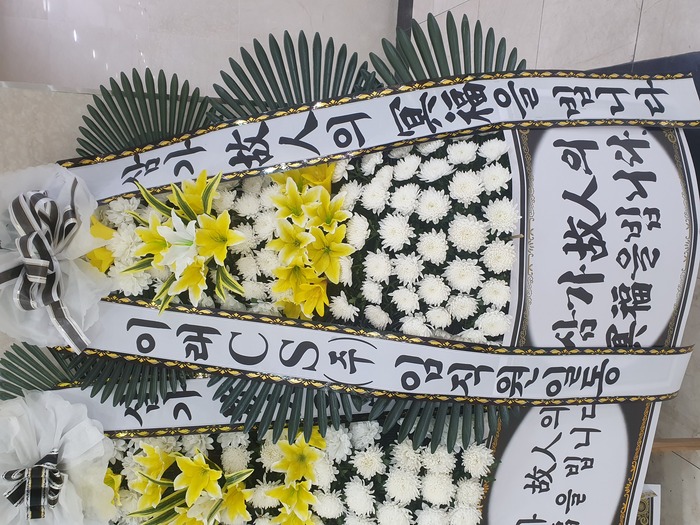 삼가
삼가 故人의
冥福을 빕니다
이래CS(주) 임직원일동
삼가 故人의 冥福을 빕니다
삼가 故人의
冥福을 빕니다